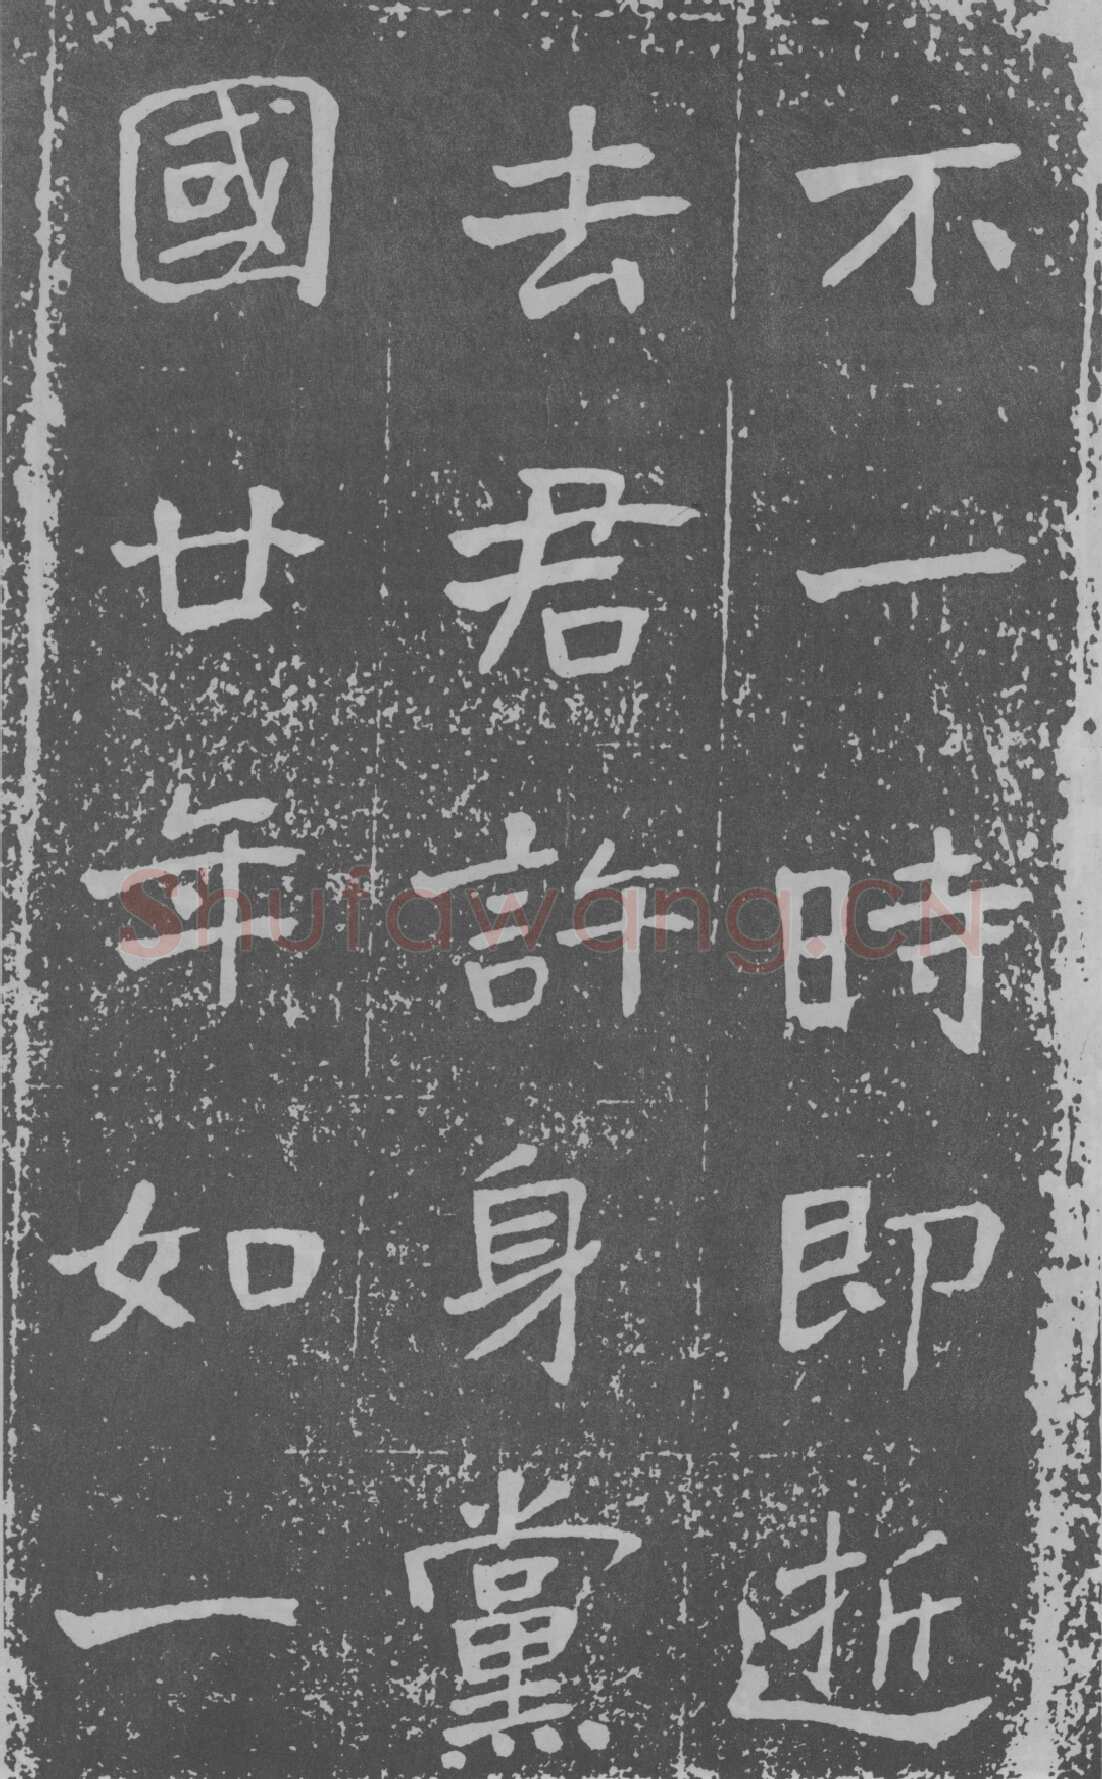 不一時即逝
去君許身黨
國廿年如一
Shufawang.CN